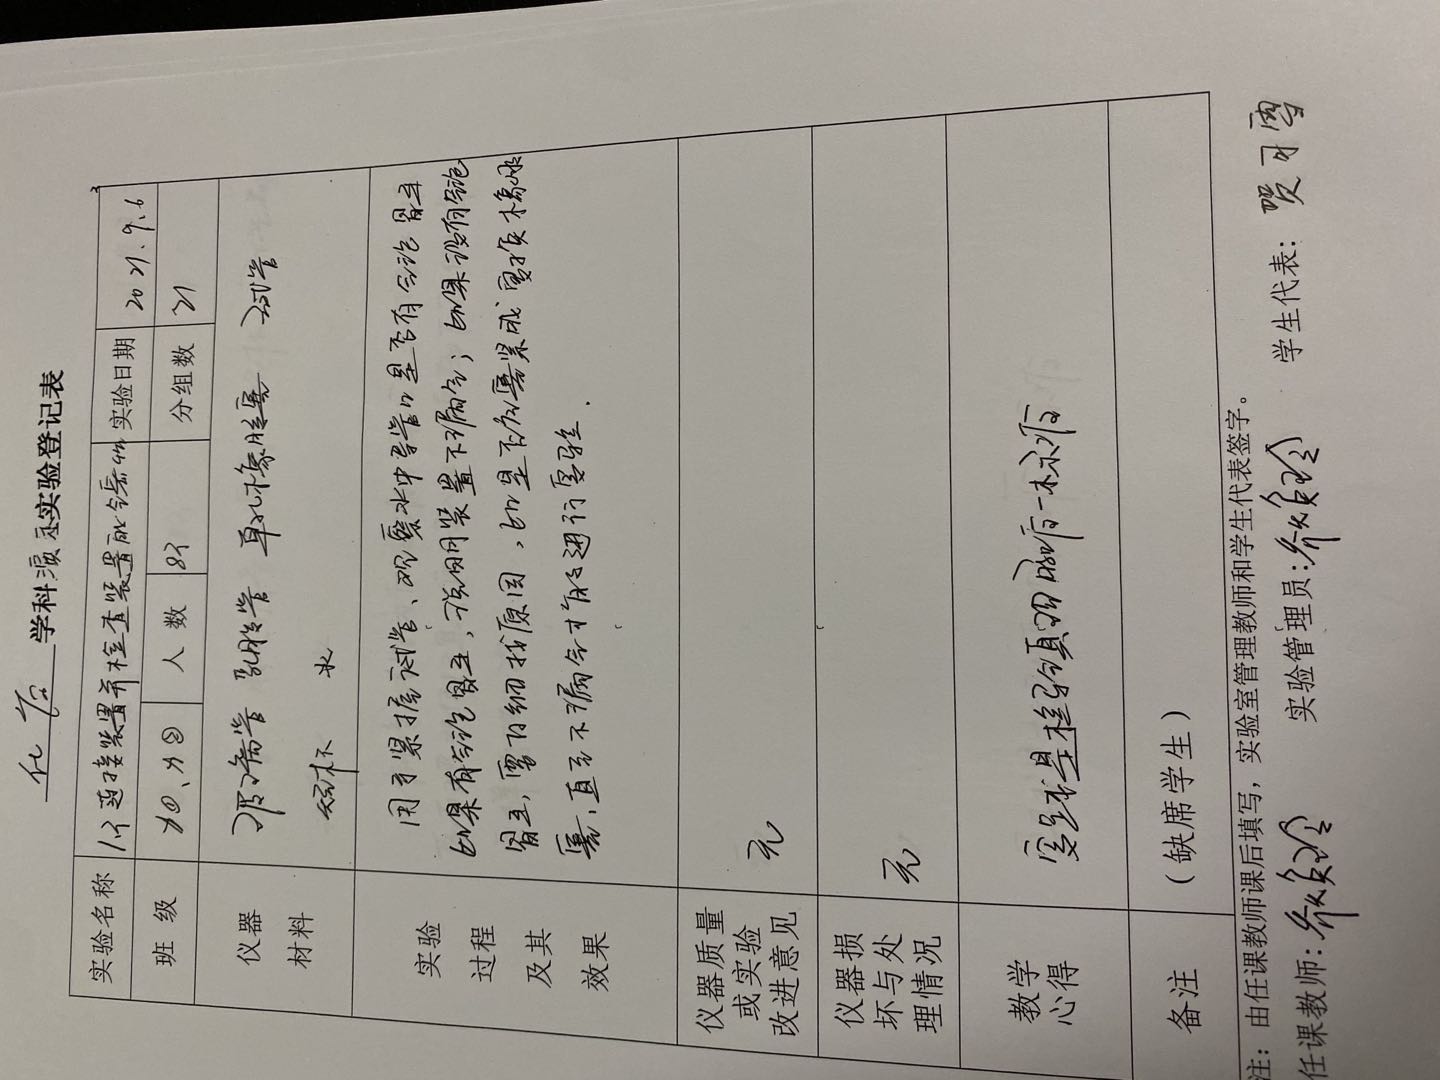 化 学 学科演示实验登记表
实验名称 连接装置并检查装置的气密性 实验日期 2021.9.6
班 级 人 数 83 分组数 21
仪器 玻璃管 乳胶管 单孔橡胶塞 试管
材料 烧杯 水
实验 用手紧握试管、观察水中导管口是否有气泡冒出
过程 如果有气泡冒出,说明装置不漏气;如果没有气泡
及其 冒出,需仔细找原因,如是否塞紧或更换橡胶
效果 塞,直至不漏气才能进行实验.
仪器质量
或实验
改进意见 无
仪器损
坏与处
理情况 无
教学
心得 实验是检验真理的唯一标准
备注 (缺席学生)
注:由任课教师课后填写,实验室管理教师和学生代表签字。
任课教师: 实验管理员: 学生代表: